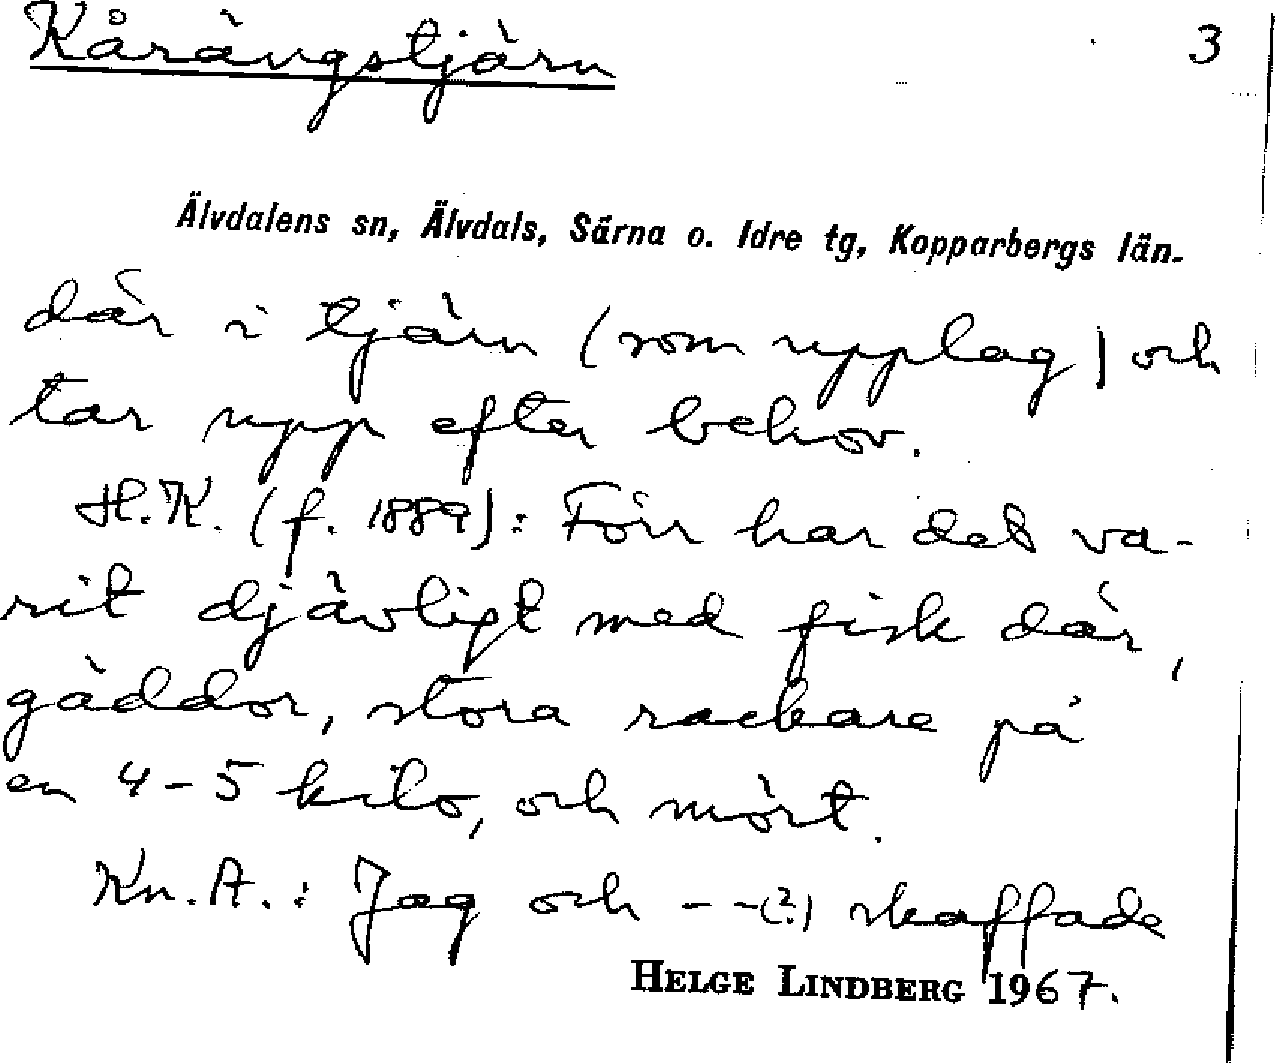 Kårängstjärn 3
Älvdalens sn, Älvdals, Särna o. Idre tg, Kopparbergs län.
där i tjärn (som upplag) och
tar upp efter behov.
H.K. (f. 1889): Förr har det va-
rit djävligt med fisk där,
gäddor, stora rackare på
en 4-5 kilo, och mört.
Kn. A.: Jag och - -(?) skaffade
HELGE LINDBERG 1967.